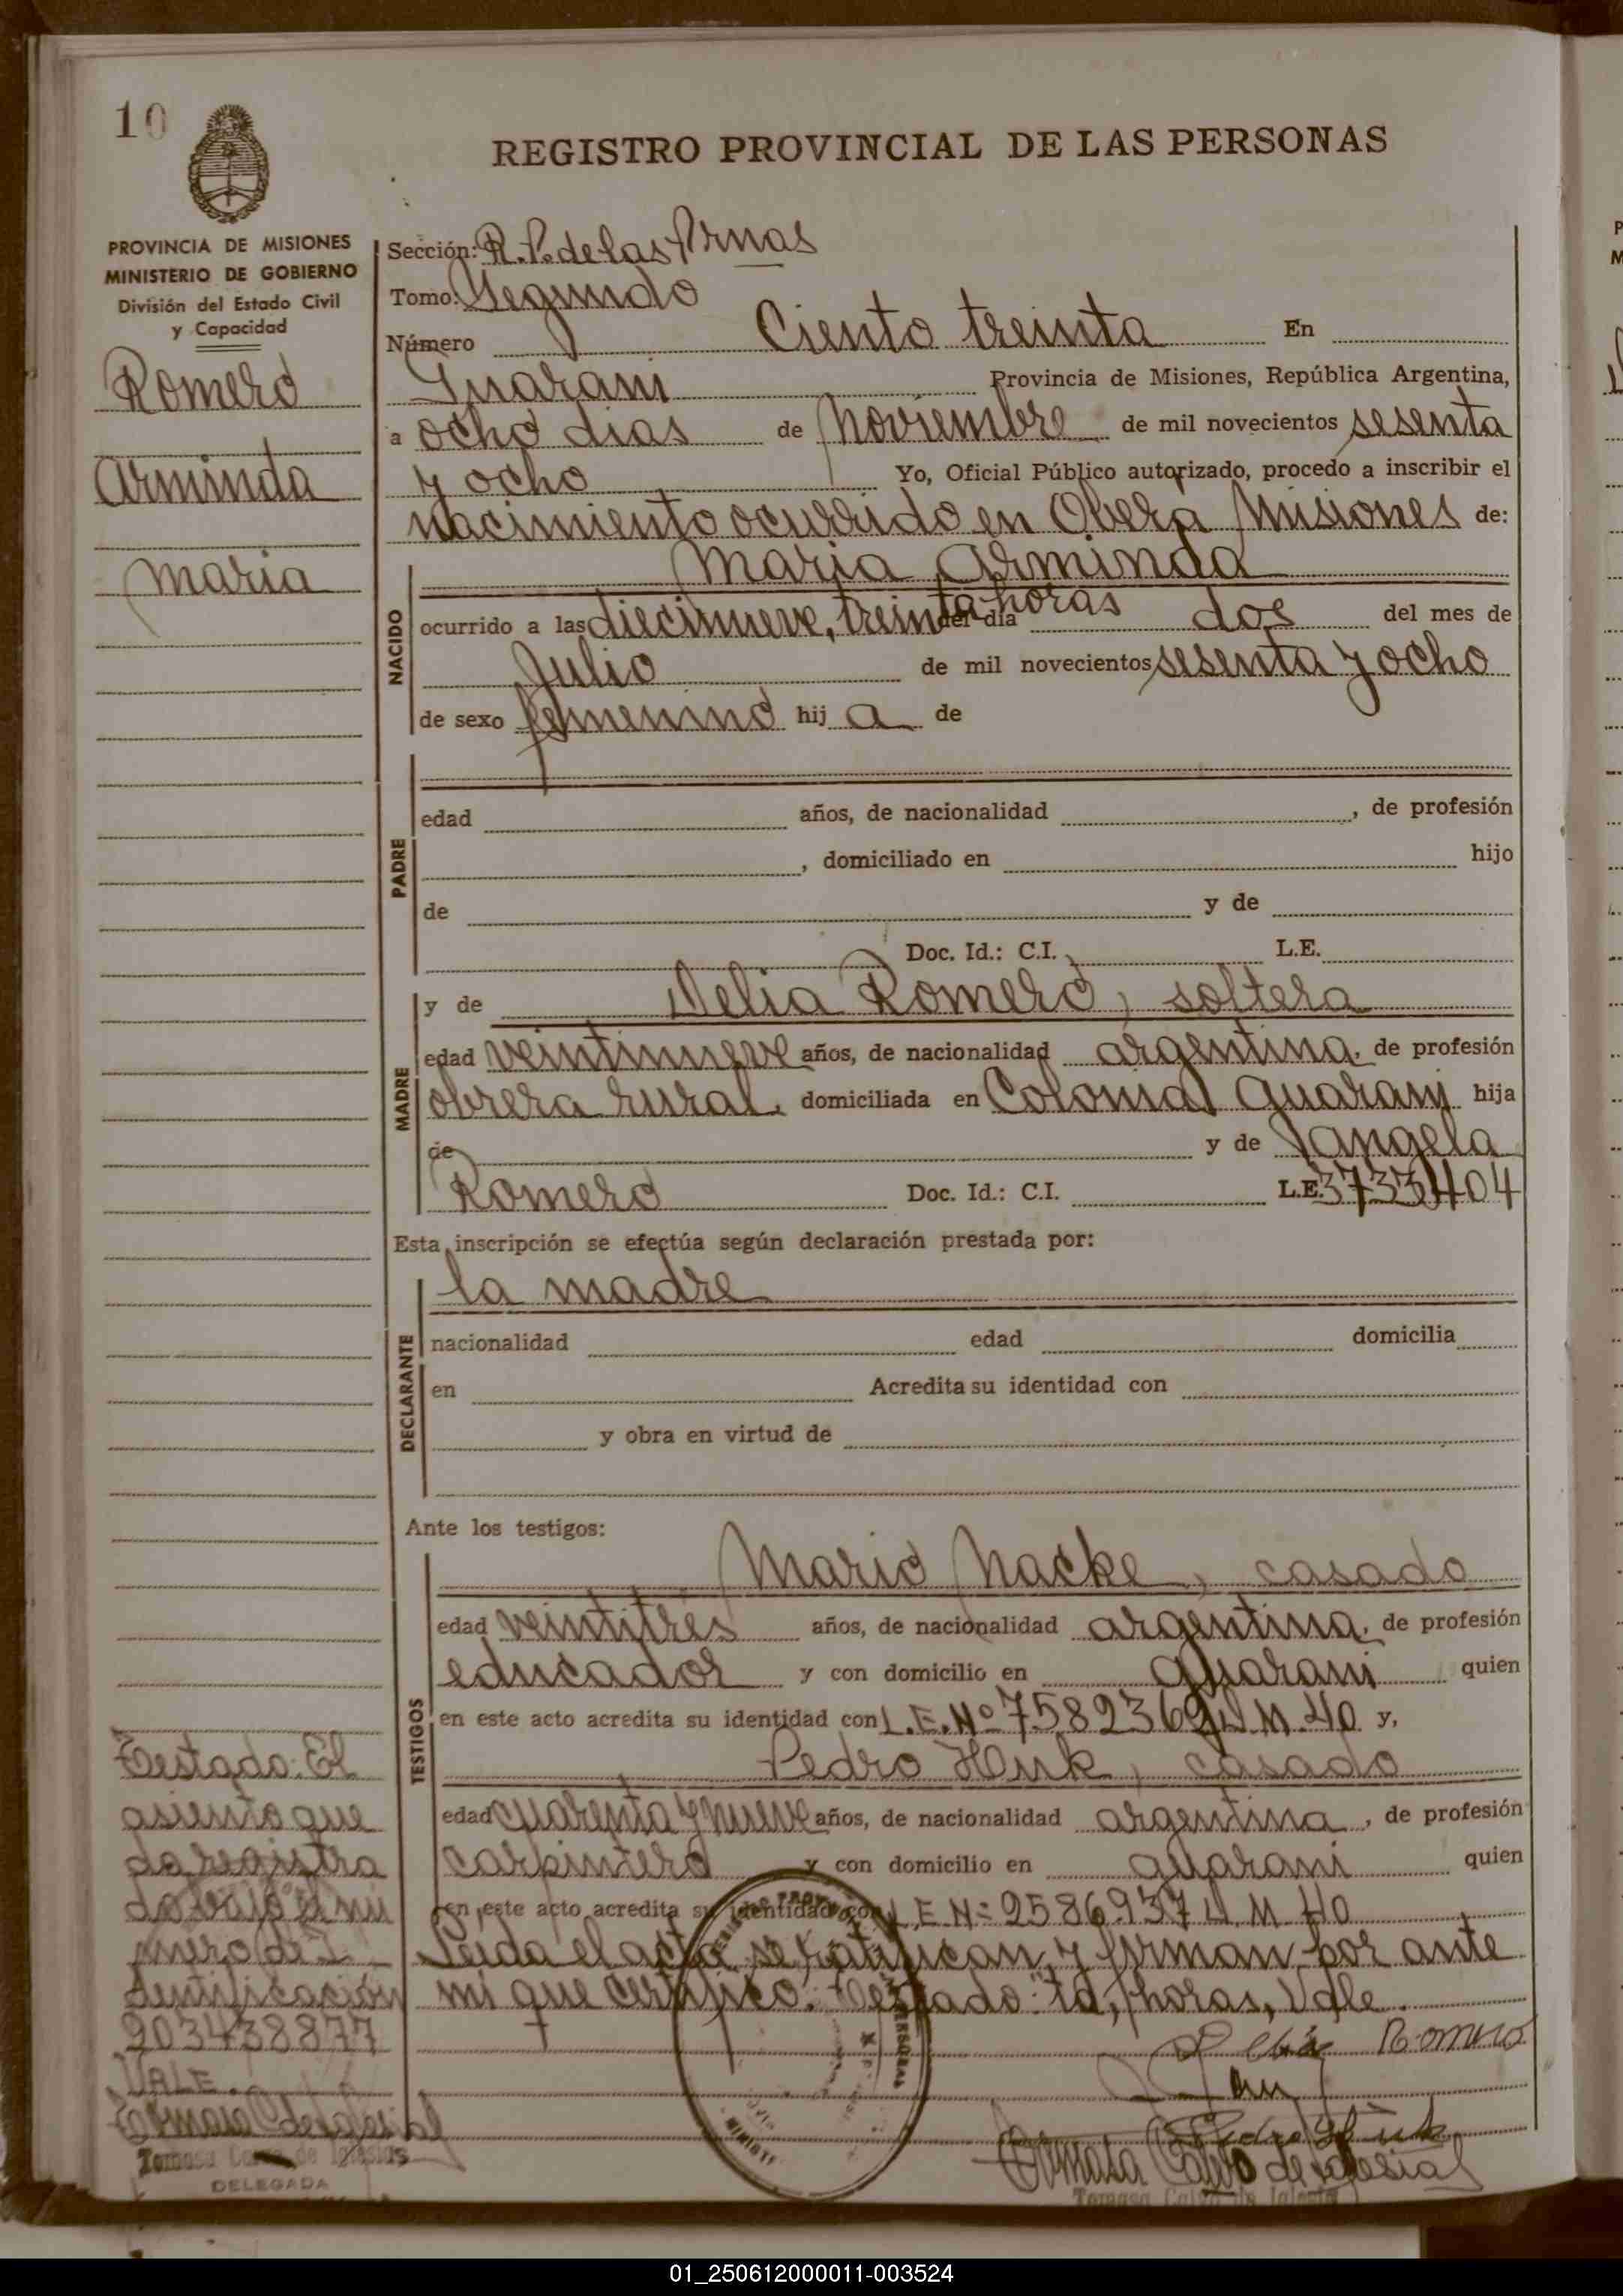 10
REGISTRO PROVINCIAL DE LAS PERSONAS
PROVINCIA DE MISIONES
MINISTERIO DE GOBIERNO
División del Estado Civil
y Capacidad
Romero
Arminda
Maria
Sección: R. P. de las Prnas
Tomo: Segundo
Número Ciento treinta En
Guarani Provincia de Misiones, República Argentina,
a ocho dias de Noviembre de mil novecientos sesenta
y ocho Yo, Oficial Público autorizado, procedo a inscribir el
nacimiento ocurrido en Oberá Misiones de:
Maria Arminda
NACIDO
ocurrido a las diecinueve, treinta horas del día dos del mes de
Julio de mil novecientos sesenta y ocho
de sexo femenino hij a de
PADRE
edad años, de nacionalidad , de profesión
, domiciliado en hijo
de y de
Doc. Id.: C.I. L.E.
MADRE
y de Delia Romero, soltera
edad veintinueve años, de nacionalidad argentina, de profesión
obrera rural, domiciliada en Colonia Guarani hija
de y de Angela
Romero Doc. Id.: C.I. L.E. 3733404
Esta inscripción se efectúa según declaración prestada por:
DECLARANTE
la madre
nacionalidad edad domicilia
en Acredita su identidad con
y obra en virtud de
Ante los testigos:
TESTIGOS
Mario Nacke, casado
edad veintitres años, de nacionalidad argentina, de profesión
educador y con domicilio en Guarani quien
en este acto acredita su identidad con L.E. Nº 7582369 D.M. 40 y,
Pedro Huk, casado
edad cuarenta y nueve años, de nacionalidad argentina, de profesión
carpintero y con domicilio en Guarani quien
en este acto acredita su identidad con L.E. Nº 2586937 D.M. 40
Leida el acta se ratifican y firman por ante
mi que certifico. Testado: "ta, horas, Vale.
Testado: El
asiento que
da registra
do bajo el nú
mero de I
dentificación
203438877
VALE.
Tomasa C de Iglesias
Tomasa Calvo de Iglesias
DELEGADA
Delia Romero
Pedro Huk
Tomasa Calvo de Iglesias
Tomasa Calvo de Iglesias
01_250612000011-003524